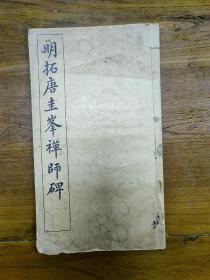 明拓唐圭峯禪師碑